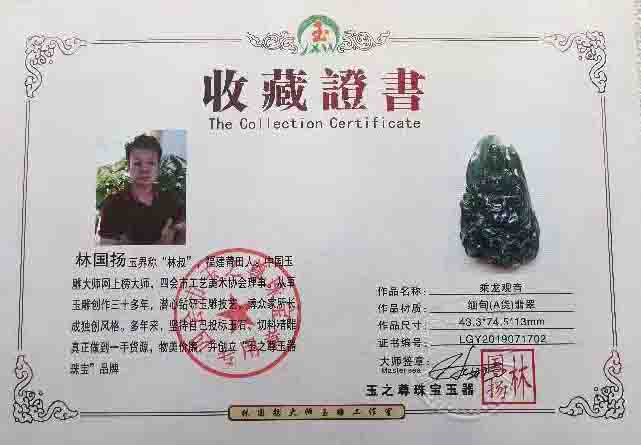 玉
收藏證書
The Collection Certificate
林国扬 玉界称"林叔",福建莆田人,中国玉
雕大师网上榜大师,四会市工艺美术协会理事。从事
玉雕创作三十多年,潜心钻研玉雕技艺,博众家所长
成独创风格。多年来,坚持自己投标玉石,切料精雕
真正做到一手货源,物美价廉,并创立"玉之尊玉器
珠宝"品牌
专用章
作品名称: 乘龙观音
作品材质: 缅甸(A货)翡翠
作品尺寸: 43.3*74.5*13mm
证书编号: LGY2019071702
大师签章:
Mastersea
林国扬
玉之尊珠宝玉器
林国扬大师玉雕工作室